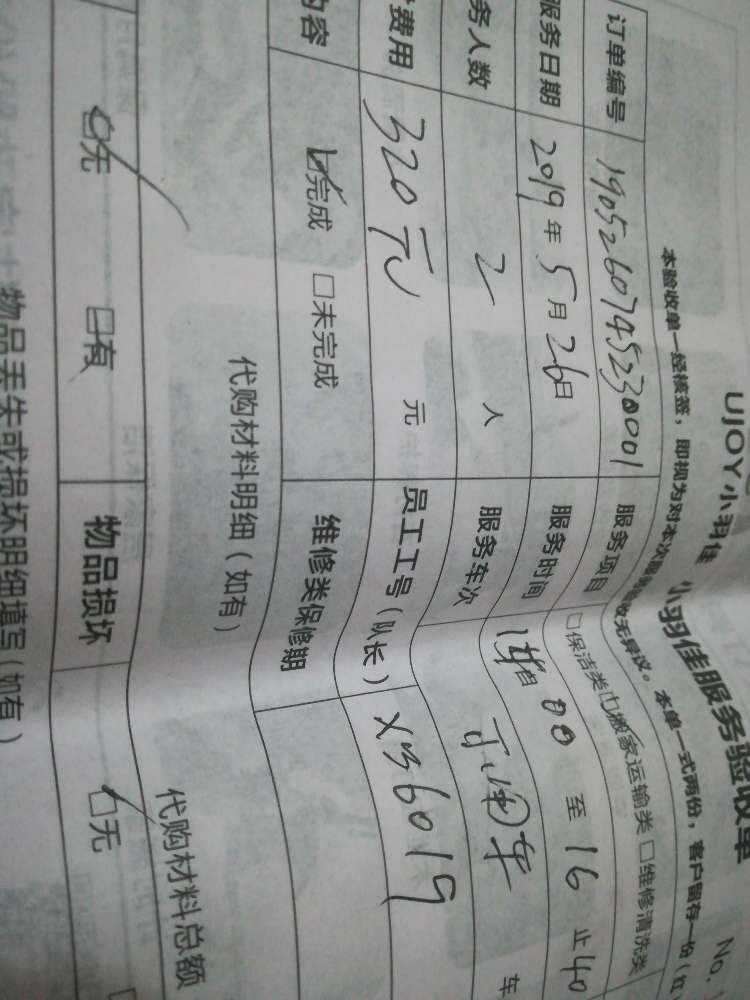 UJOY小羽佳 小羽佳服务验收单 No.
本验收单一经核签，即视为对本次服务验收无异议。本单一式两份，客户留存一份（红
订单编号 1905260745230001 服务项目 □保洁类 搬家运输类 □维修清洗类
服务日期 2019年5月26日 服务时间 00 至 16 止 40
务人数 2 人 服务车次 车
费用 320元 元 员工工号（队长） XS6019
内容 完成 □未完成 维修类保修期
代购材料明细（如有） 代购材料总额
□无 □有 物品损坏 □无
物品丢失或损坏明细填写（如有）